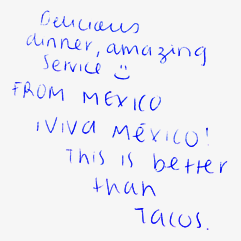 Delicious
dinner, amazing
service ☺
FROM MEXICO
¡VIVA MÉXICO!
This is better
than
TACOS.